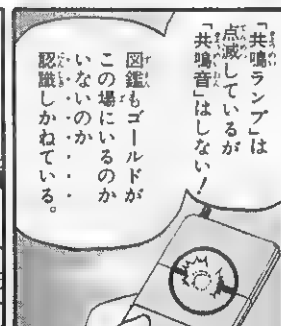 「共鳴ランプ」は
点滅しているが
「共鳴音」はしない！
図鑑もゴールドが
この場にいるのか
いないのか
・・・・・・
認識しかねている。